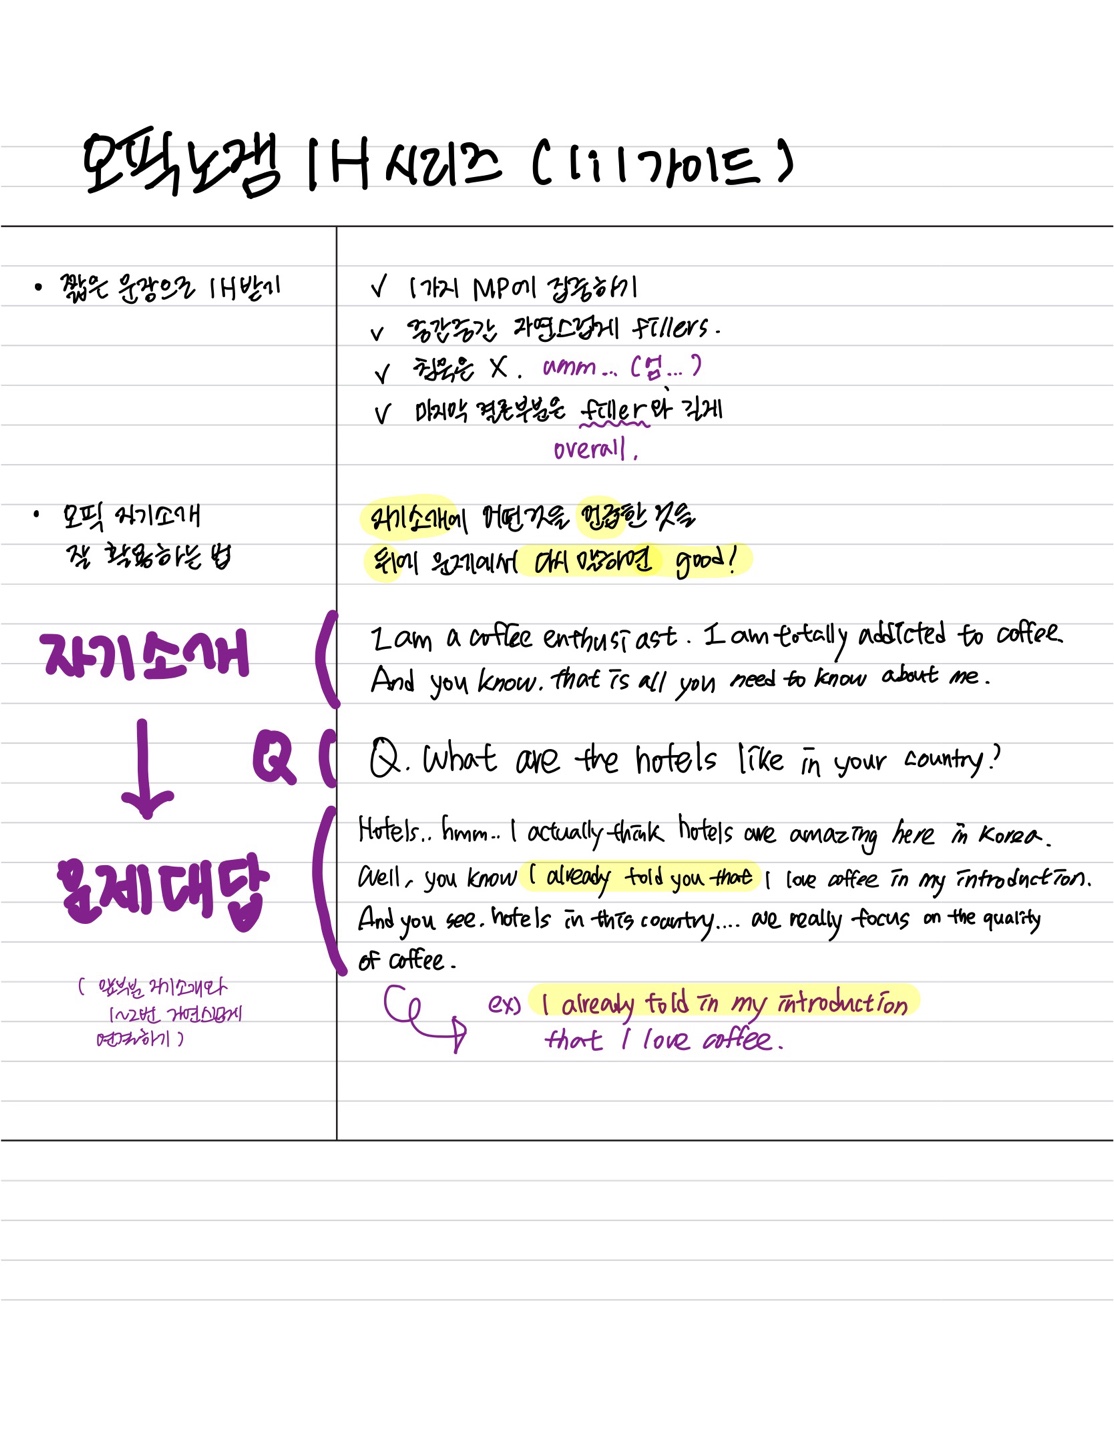 오픽노잼 IH시리즈 (IiI가이드)
• 짧은 문장으로 IH받기
✓ 1가지 MP에 집중하기
✓ 중간중간 자연스럽게 fillers.
✓ 침묵은 X. umm... (엄...)
✓ 마지막 결론부분은 filler와 길게
overall.
• 오픽 자기소개
잘 활용하는 법
자기소개에 어떤것을 언급한 것을
뒤에 문제에서 다시 말하면 good!
자기소개
I am a coffee enthusiast. I am totally addicted to coffee.
And you know. that is all you need to know about me.
Q
Q. What are the hotels like in your country?
문제대답
Hotels.. hmm.. I actually think hotels are amazing here in Korea.
Well, you know I already told you that I love coffee in my introduction.
And you see. hotels in this country.... we really focus on the quality
of coffee.
( 앞부분 자기소개와
1~2번 자연스럽게
연결하기)
ex) I already told in my introduction
that I love coffee.